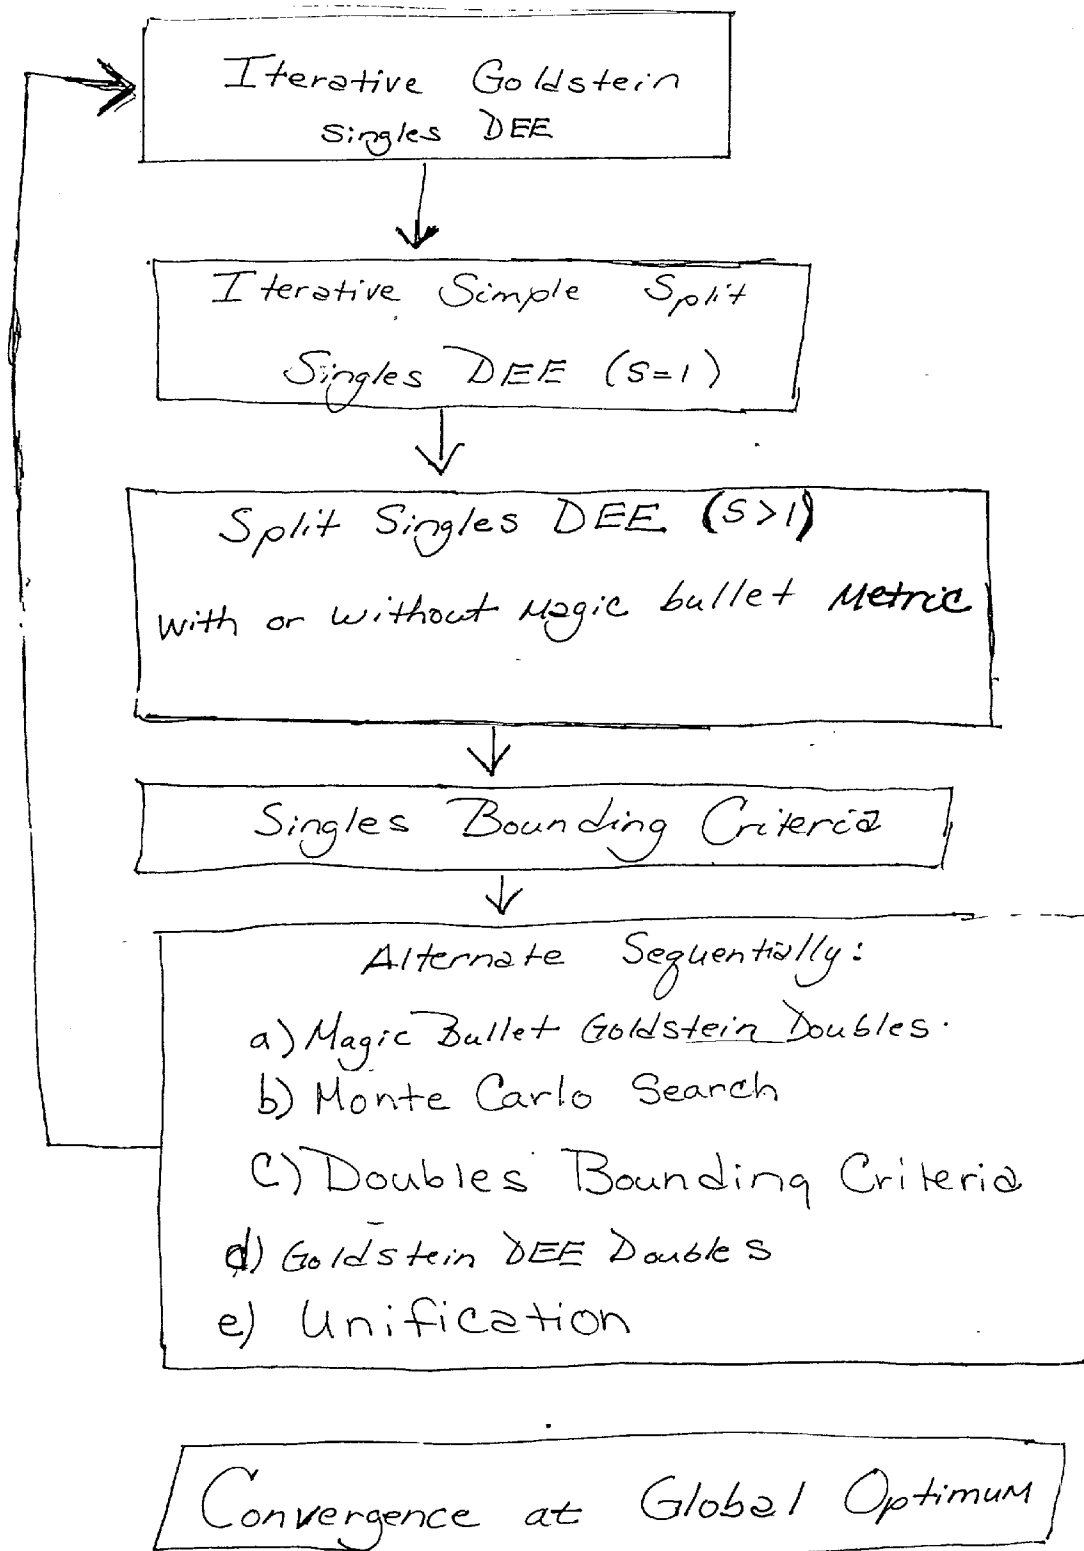 Iterative Goldstein
Singles DEE
Iterative Simple Split
Singles DEE (s=1)
Split Singles DEE (s>1)
with or without Magic bullet Metric
Singles Bounding Criteria
Alternate Sequentially:
a) Magic Bullet Goldstein Doubles.
b) Monte Carlo Search
c) Doubles Bounding Criteria
d) Goldstein DEE Doubles
e) Unification
Convergence at Global Optimum